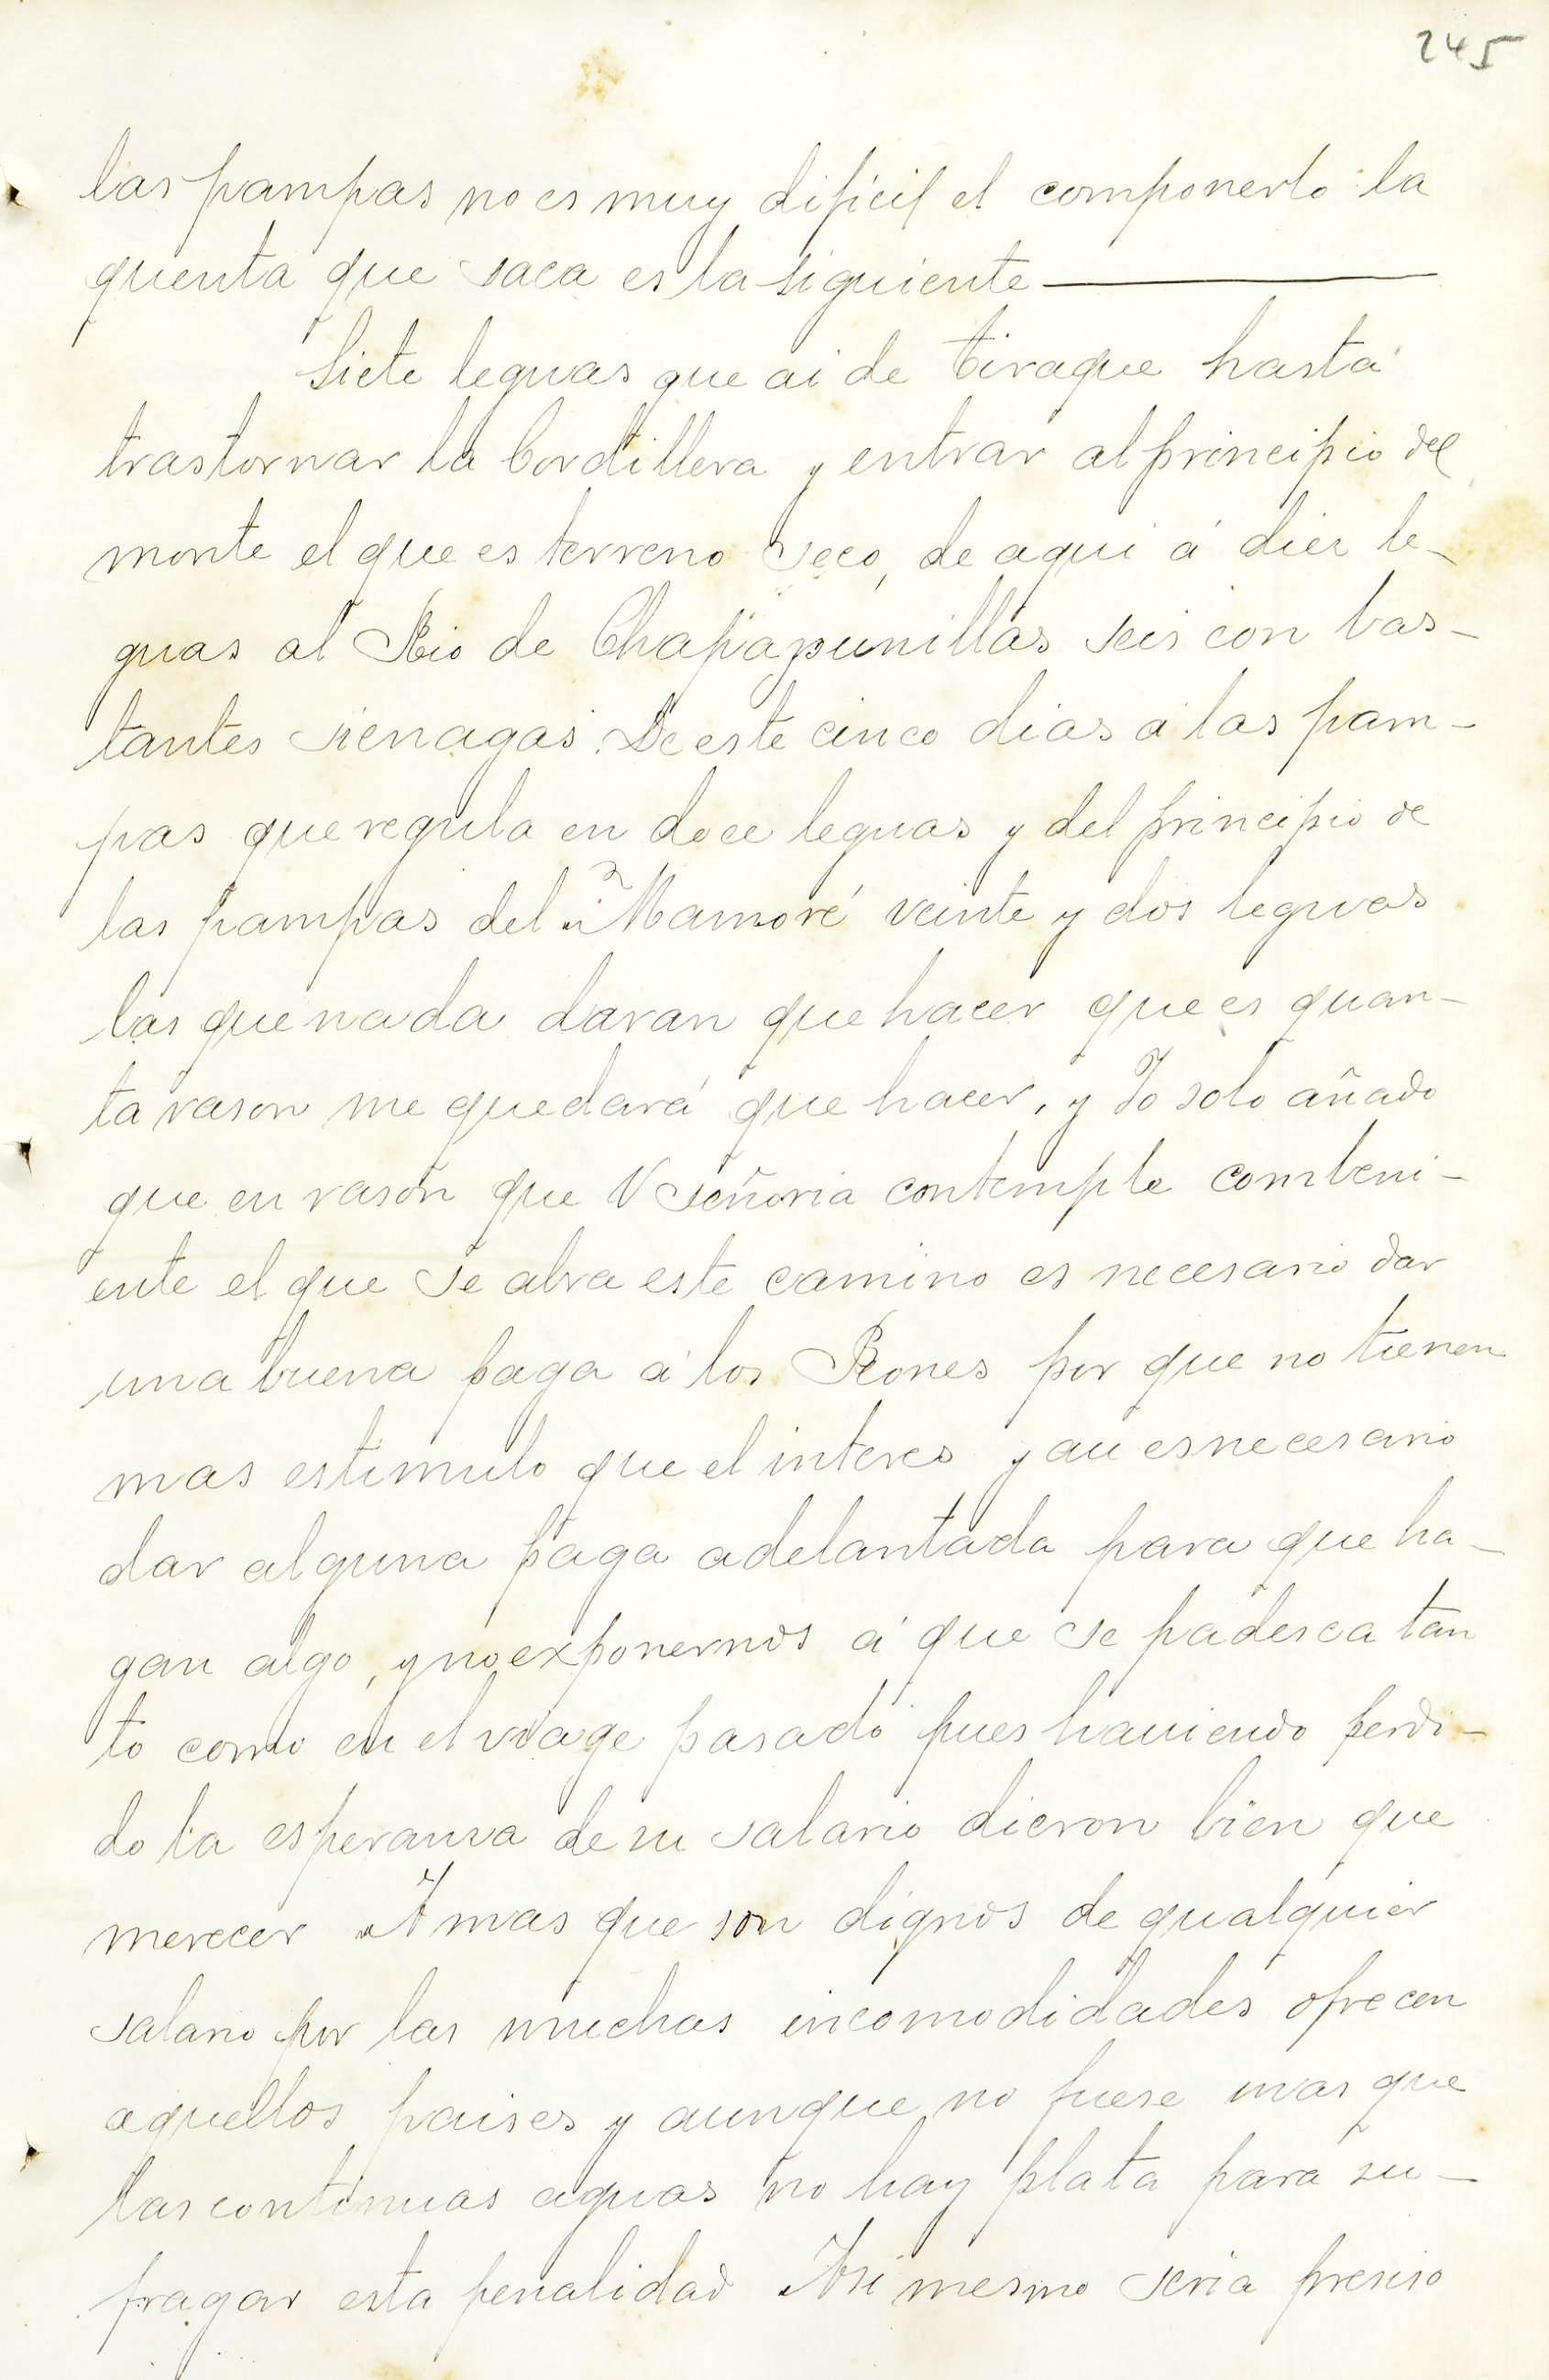 245
las pampas no es muy dificil el componerlo la
quenta que saca es la siguiente
Siete leguas que ai de Tiraque hasta
trastornar la Cordillera y entrar al principio del
monte el que es terreno seco, de aqui á diez le-
guas al Rio de Chapapunillas seis con bas-
tantes sienagas. De este cinco dias a las pam-
pas que regula en doce leguas y del principio de
las pampas del Mamoré veinte y dos leguas
las que nada daran que hacer que es quan-
ta rason me quedará que hacer, y Yo solo añado
que en rasón que V señoria contemple combeni-
ente el que se abra este camino es necesario dar
una buena paga a los Peones por que no tienen
mas estimulo que el interes y au es necesario
dar alguna paga adelantada para que ha-
gan algo, y no exponernos a que se padesca tan
to como en el viage pasado pues haviendo perdi-
do la esperanza de su salario dieron bien que
merecer A mas que son dignos de qualquier
salario por las muchas incomodidades ofrecen
aquellos paises y aunque no fuese mas que
las continuas aguas no hay plata para su-
fragar esta penalidad Asi mesmo seria presiso